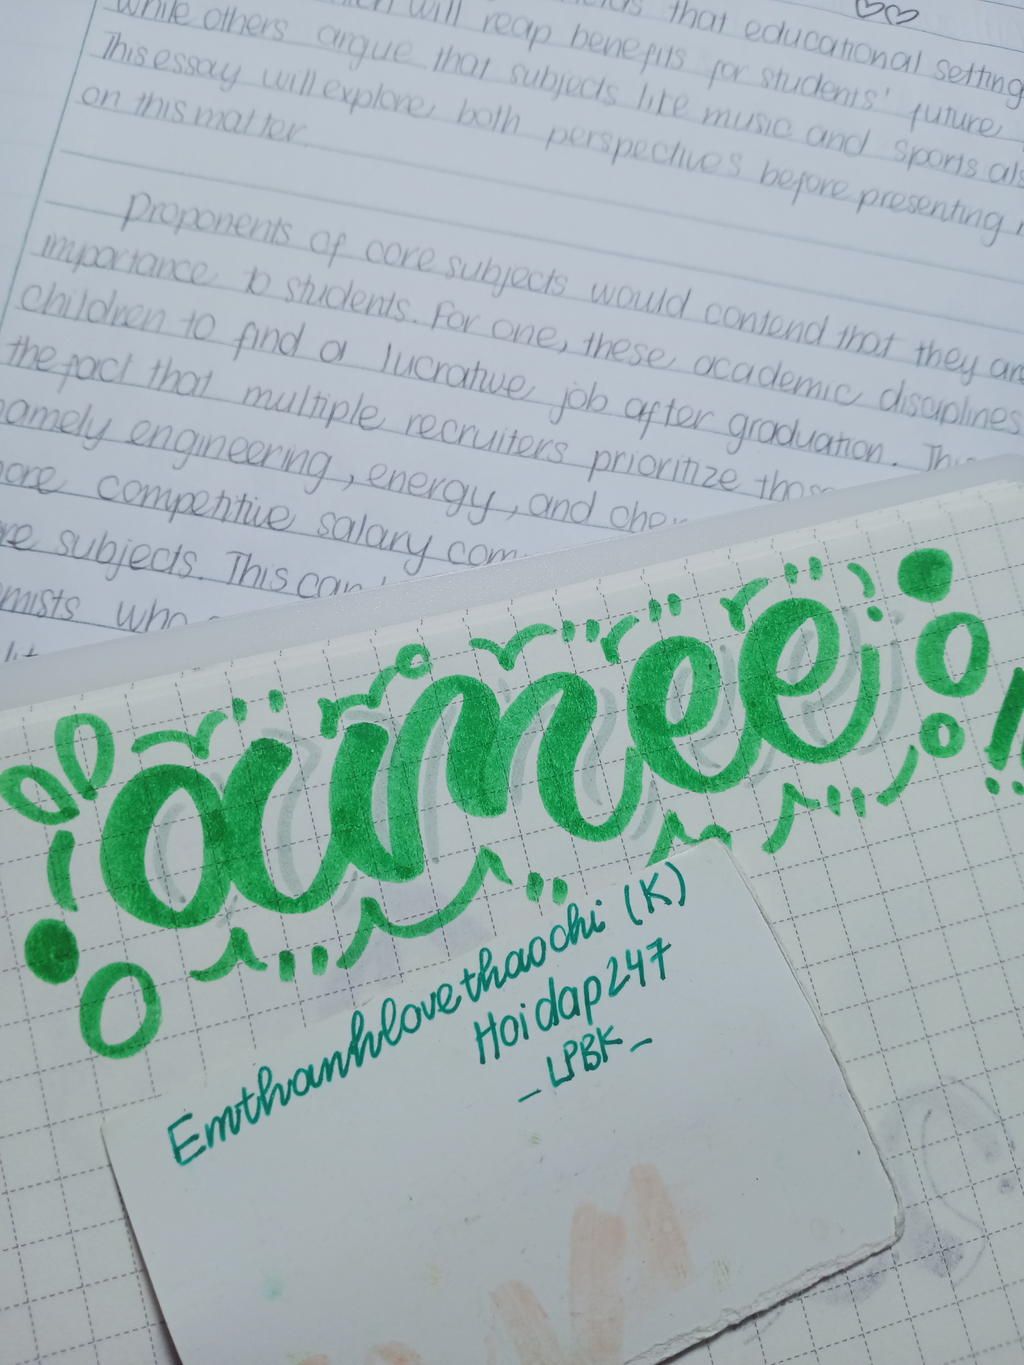 will reap benefits for that educational setting
while others argue that subjects like music and sports als
This essay will explore both perspectives before presenting
on this matter.
Proponents of core subjects would contend that they are
importance to students. For one, these academic disciplines
children to find a lucrative job after graduation. This
the fact that multiple recruiters prioritize those
namely engineering, energy, and chem
more competitive salary com
subjects. This can
mists who
aimee
Emthanhlovethaochi (K)
Hoidap247
_LPBK_